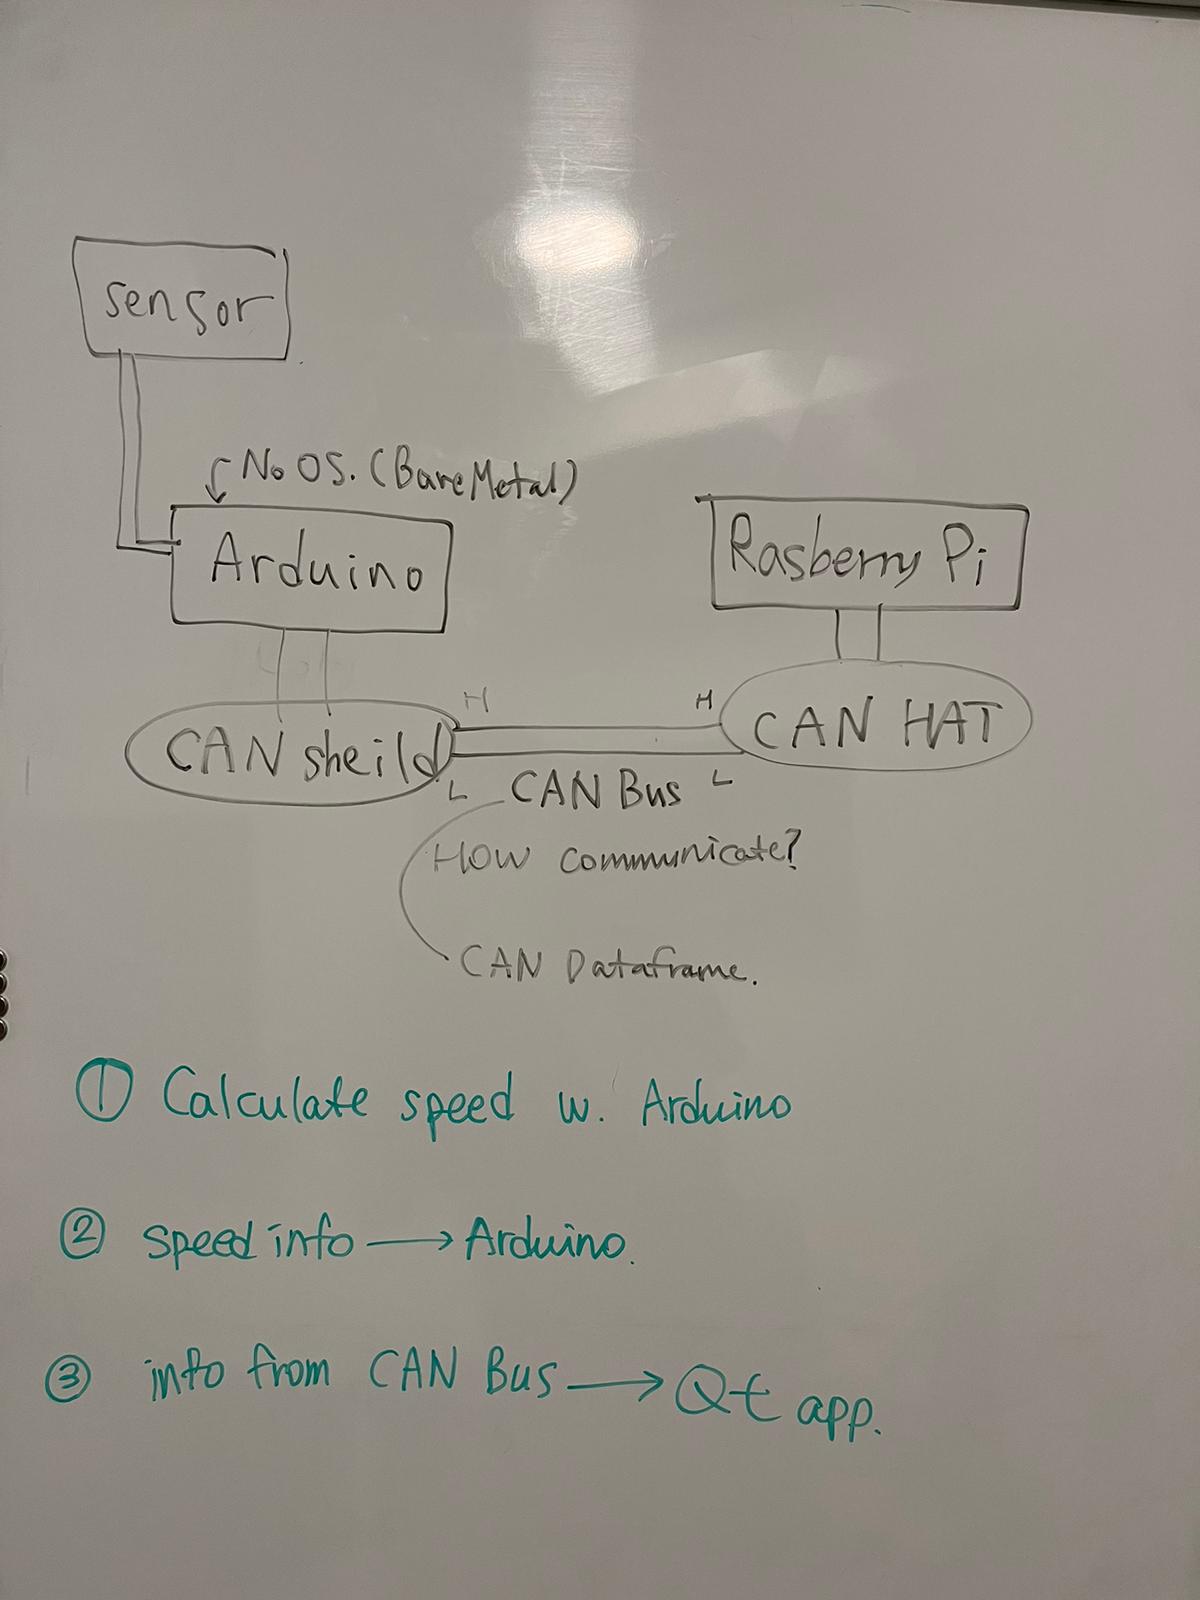 sensor
No OS. (Bare Metal)
Arduino
Rasberry Pi
H
H
CAN sheild
CAN HAT
L
CAN Bus
L
How communicate?
CAN Dataframe.
① Calculate speed w. Arduino
② speed info → Arduino.
③ info from CAN Bus → Qt app.